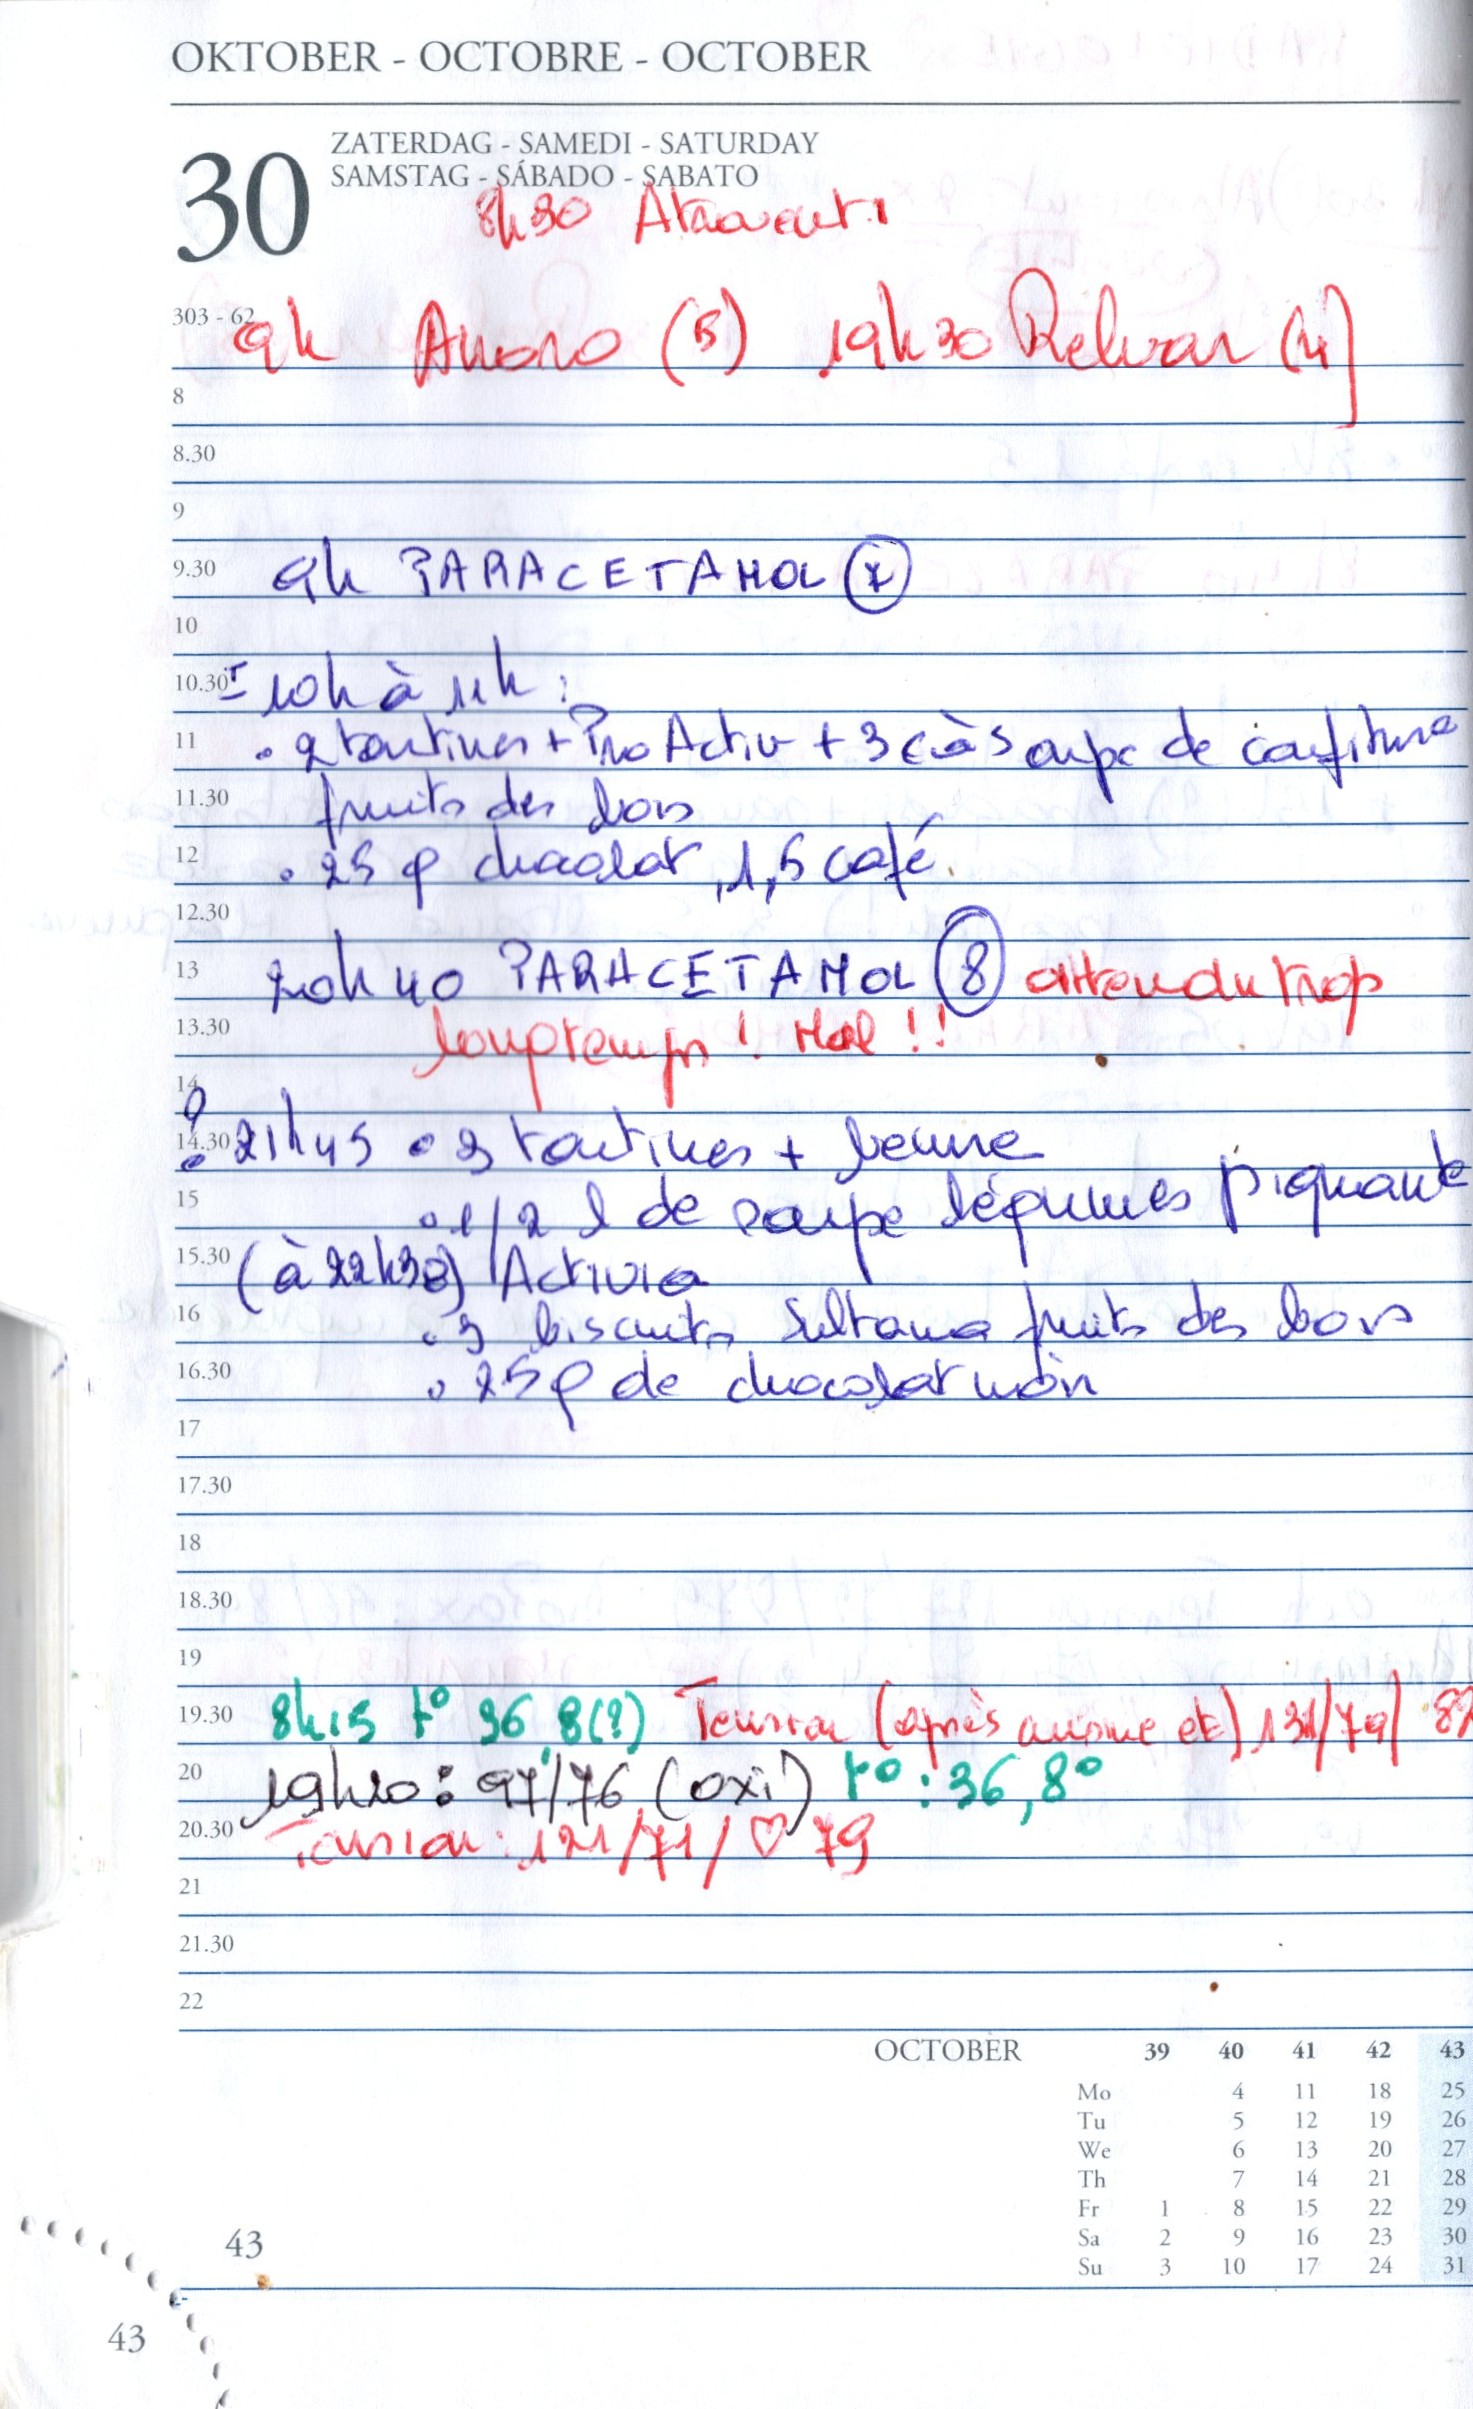 OKTOBER - OCTOBRE - OCTOBER
30
ZATERDAG - SAMEDI - SATURDAY
SAMSTAG - SÁBADO - SABATO
8h30
303 - 62
9h Anoro (5) 19h30 Relvar (4)
8
8.30
9
9.30 9h PARACETAMOL
10
10.30 10h à 11h :
11 . 2 tartines + ProActiv + 3 c à soupe de confiture
11.30 fruits des bois
12 . 25 g chocolat, 1,5 café
12.30
13 20h40 PARACETAMOL 8 attendu trop
13.30 longtemps ! Mal !!
14
14.30 21h45 . 3 tartines + beurre
15 . 1/2 l de soupe légumes piquante
15.30 (à 22h30) Activia
16 . 3 biscuits Sultana fruits des bois
16.30 . 25 g de chocolat noir
17
17.30
18
18.30
19
19.30 8h15 t° 36,8(?) Tension (après etc) 131/79/ 82
20 19h10 : 97/76 (oxi) t° : 36,8°
20.30 Tension : 121/71/♡ 79
21
21.30
22
OCTOBER 39 40 41 42 43
Mo 4 11 18 25
Tu 5 12 19 26
We 6 13 20 27
Th 7 14 21 28
Fr 1 8 15 22 29
Sa 2 9 16 23 30
Su 3 10 17 24 31
43
43